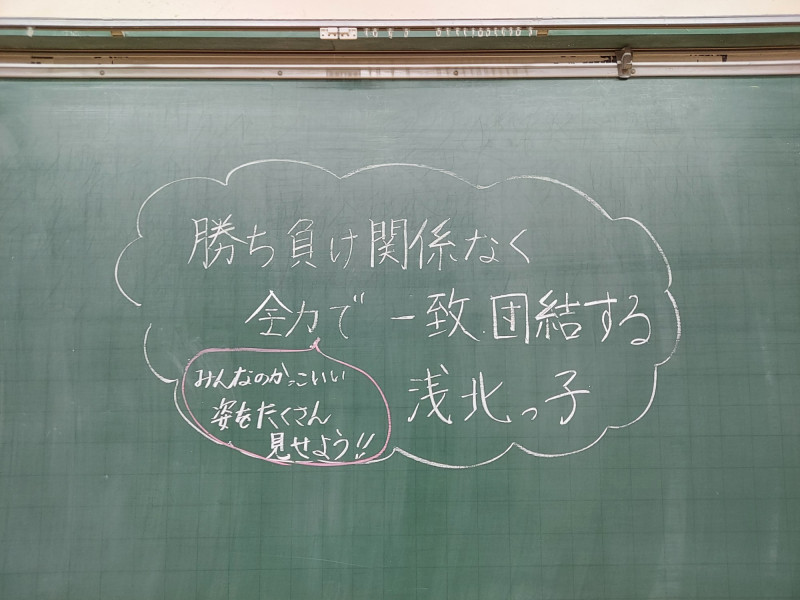 勝ち負け関係なく
全力で一致団結する
浅北っ子
みんなのかっこいい
姿をたくさん
見せよう!!